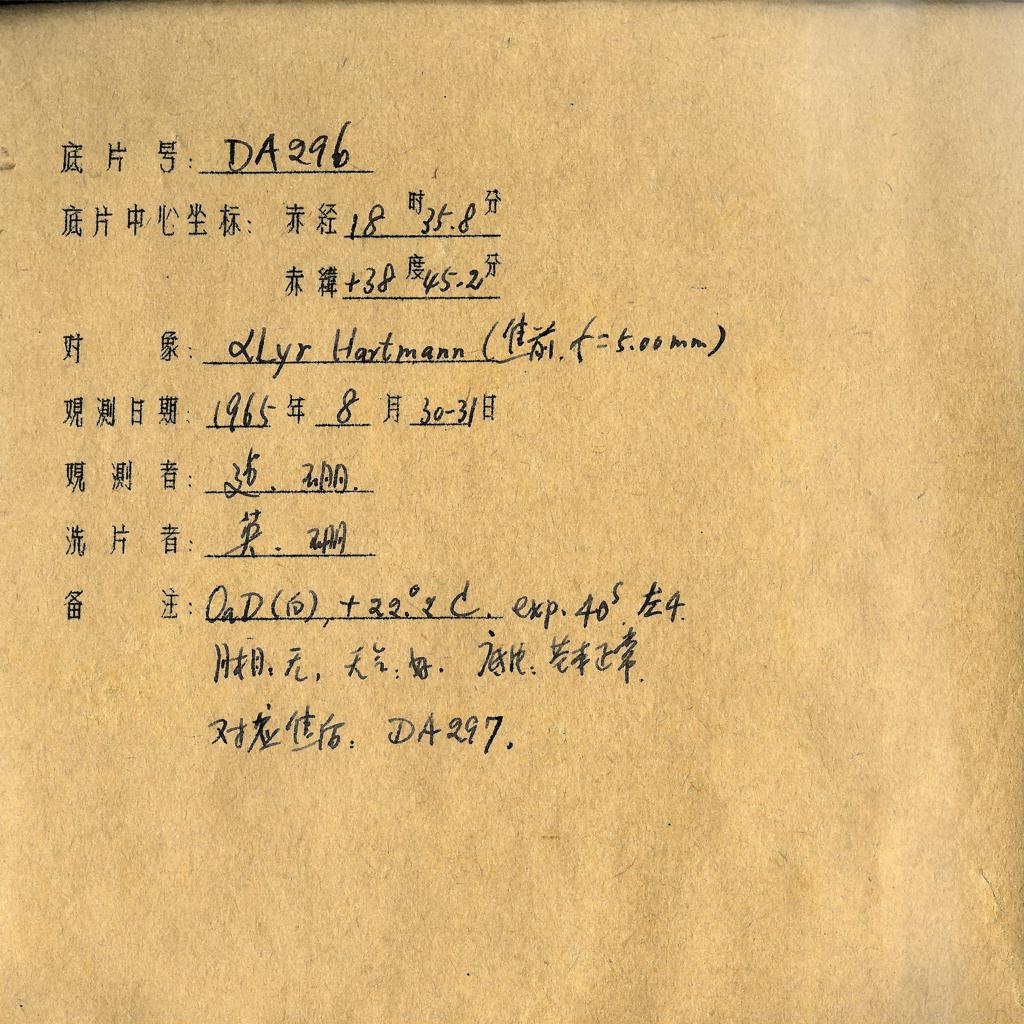 底片号: DA296
底片中心坐标: 赤经 18时35.8分
赤緯 +38度45.2分
对象: αLyr Hartmann (焦前, f=5.00mm)
观测日期: 1965年 8月 30-31日
观测者: 珊.
洗片者: 英. 珊
备注: OaD(白), +22.°2 C. exp. 40ˢ 左4.
月相: 无, 天气: 好. 底片: 基本正常.
对应焦后: DA297.